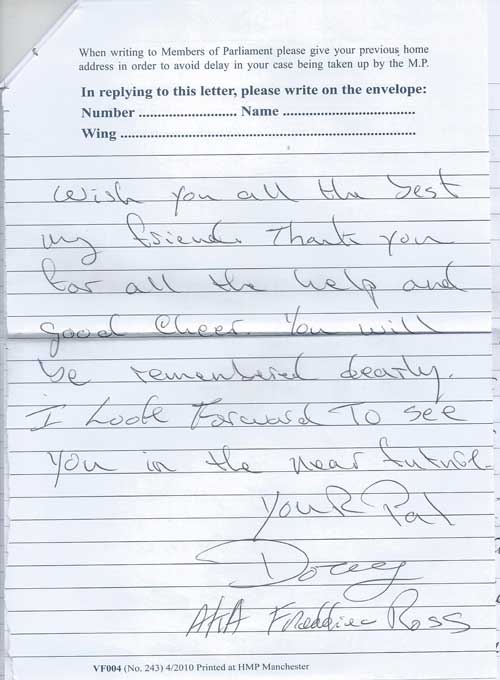 When writing to Members of Parliament please give your previous home
address in order to avoid delay in your case being taken up by the M.P.
In replying to this letter, please write on the envelope:
Number ........................... Name ....................................
Wing ................................................................................
Wish you all the best
my friend. Thank you
for all the help and
good cheer. You will
be remembered dearly.
I Look Forward To see
you in the near future.
YouR Pal
AKA Freddie Ross
VF004 (No. 243) 4/2010 Printed at HMP Manchester